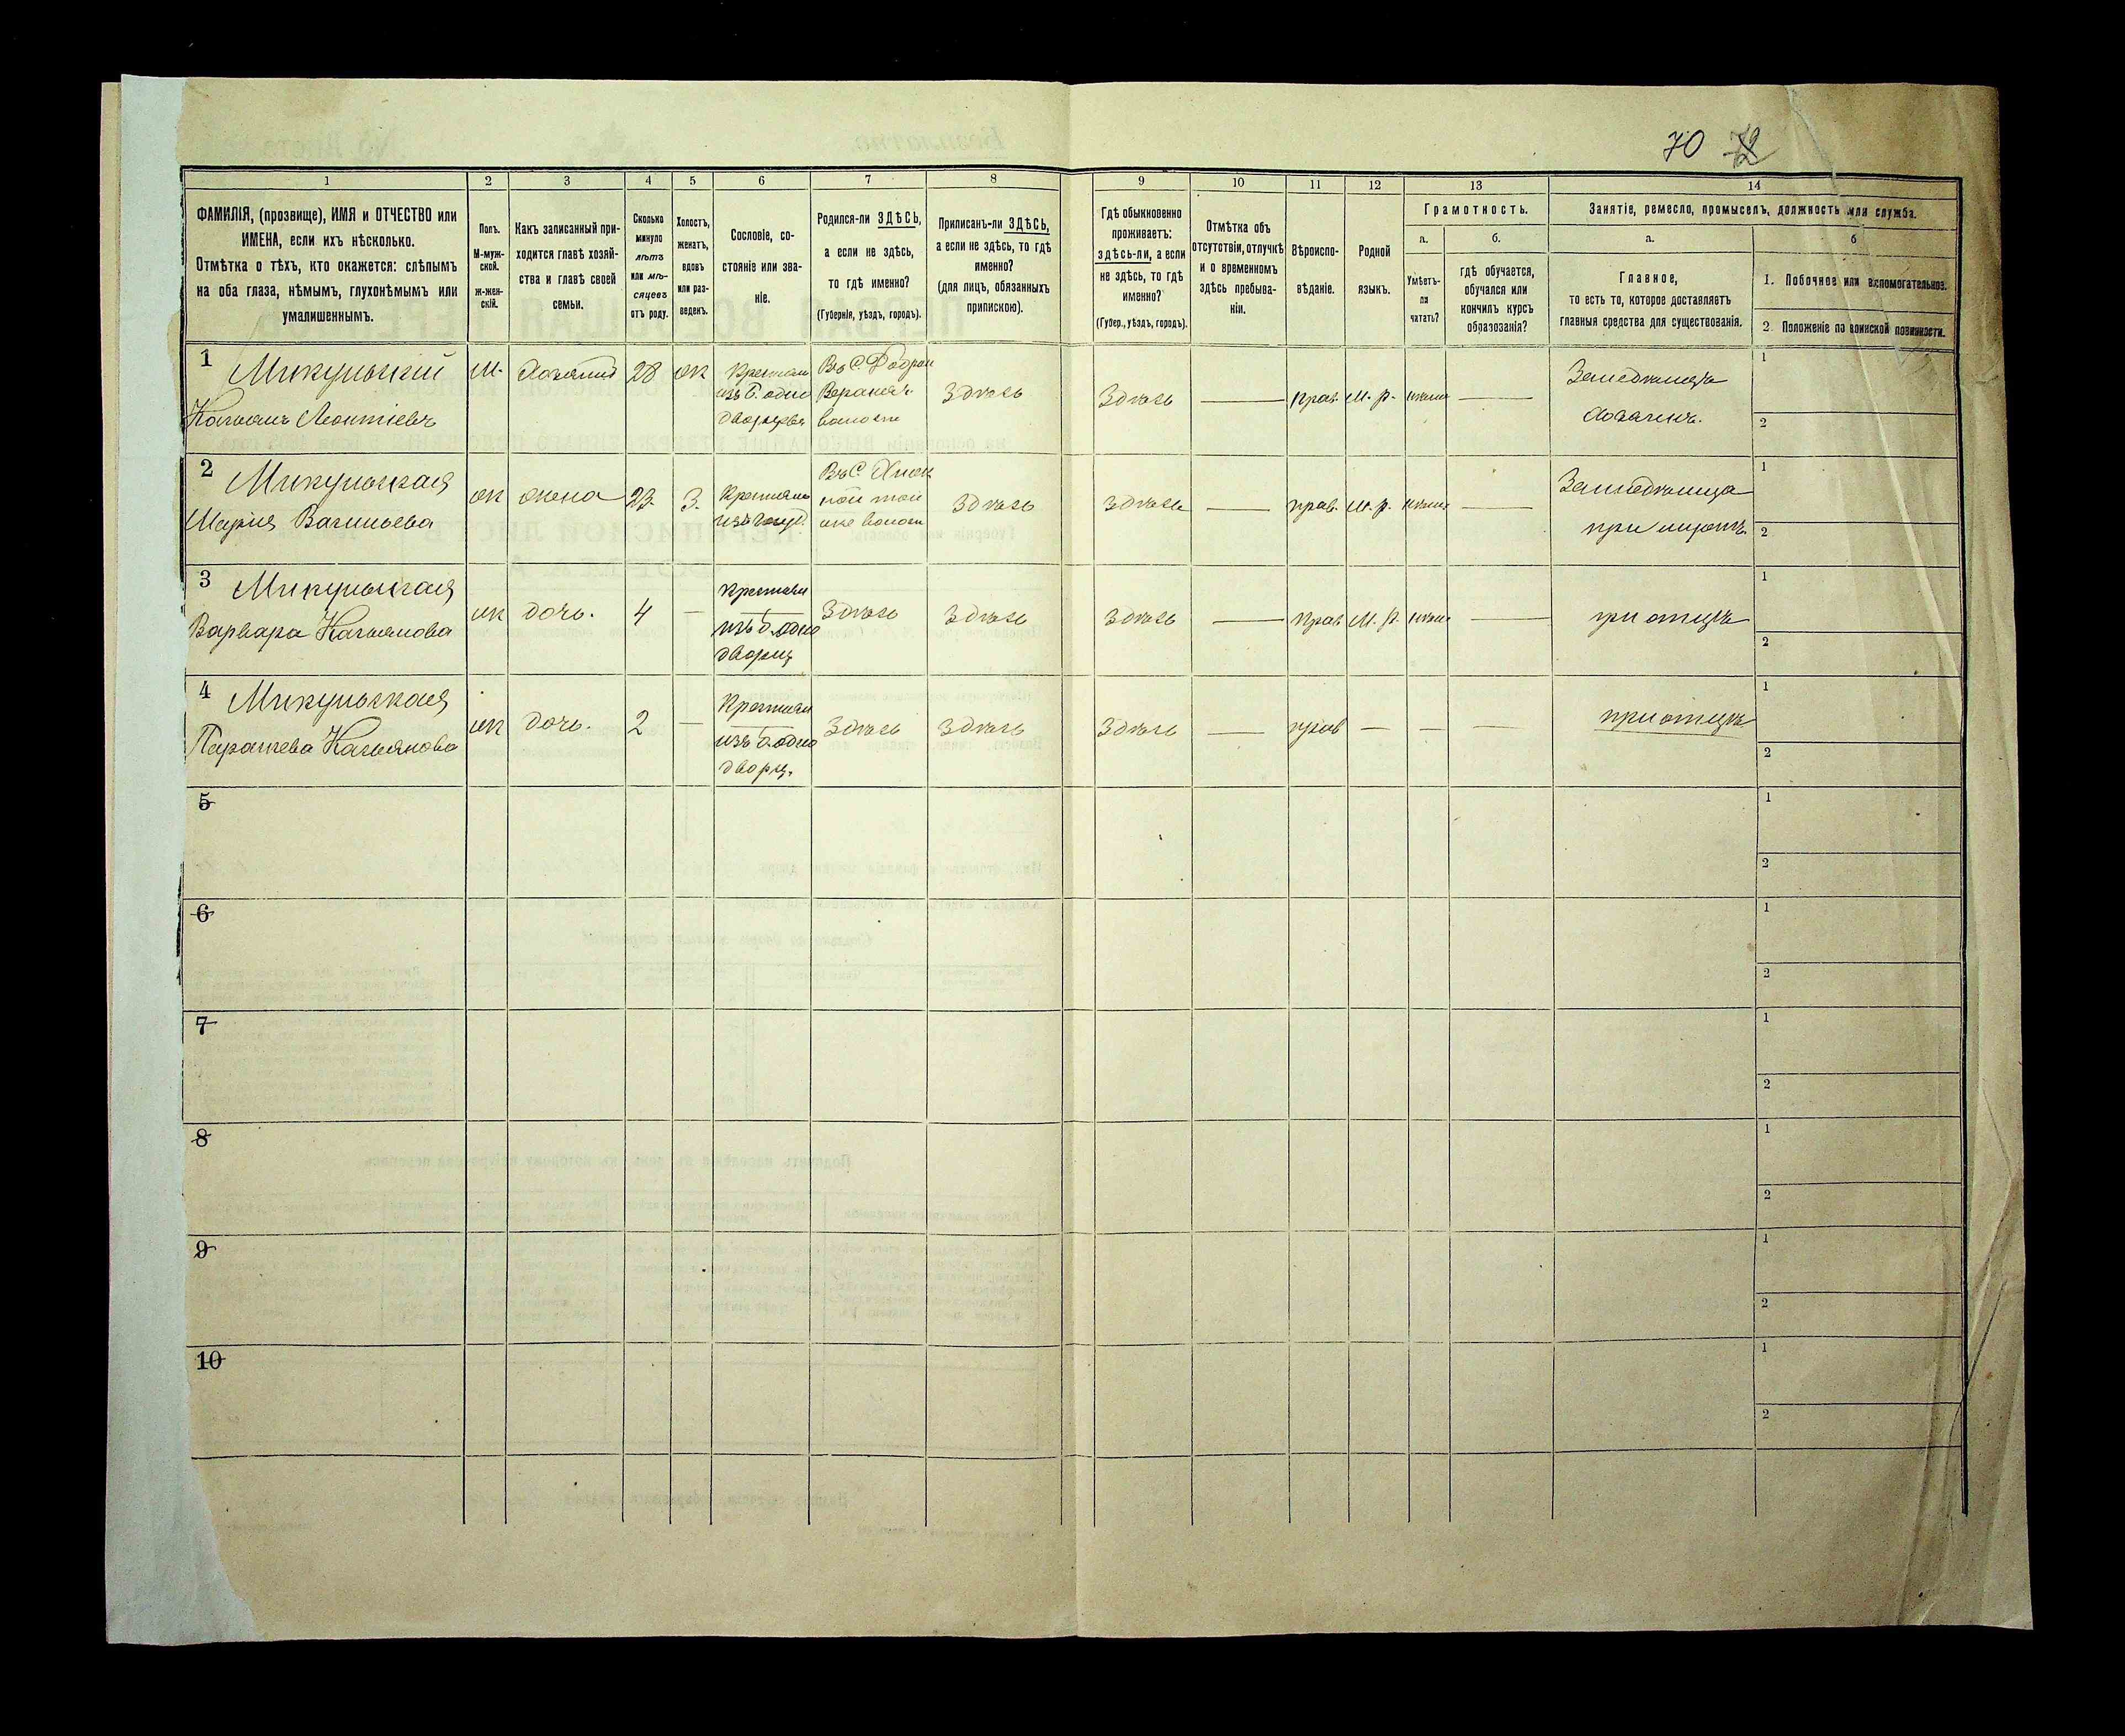 70 72
1 2 3 4 5 6 7 8 9 10 11 12 13 14
ФАМИЛІЯ, (прозвище), ИМЯ и ОТЧЕСТВО или
ИМЕНА, если ихъ нѣсколько.
Отмѣтка о тѣхъ, кто окажется: слѣпымъ
на оба глаза, нѣмымъ, глухонѣмымъ или
умалишеннымъ.
Полъ.
М-муж-
ской.
ж-жен-
скій.
Какъ записанный при-
ходится главѣ хозяй-
ства и главѣ своей
семьи.
Сколько
минуло
лѣтъ
или мѣ-
сяцевъ
отъ роду.
Холостъ,
женатъ,
вдовъ
или раз-
веденъ.
Сословіе, со-
стояніе или зва-
ніе.
Родился-ли ЗДѢСЬ,
а если не здѣсь,
то гдѣ именно?
(Губернія, уѣздъ, городъ).
Приписанъ-ли ЗДѢСЬ,
а если не здѣсь, то гдѣ
именно?
(для лицъ, обязанныхъ
припискою).
Гдѣ обыкновенно
проживаетъ:
здѣсь-ли, а если
не здѣсь, то гдѣ
именно?
(Губер., уѣздъ, городъ).
Отмѣтка объ
отсутствіи, отлучкѣ
и о временномъ
здѣсь пребыва-
ніи.
Вѣроиспо-
вѣданіе.
Родной
языкъ.
Грамотность.
а.
Умѣетъ-
ли
читать?
б.
гдѣ обучается,
обучался или
кончилъ курсъ
образованія?
Занятіе, ремесло, промыселъ, должность или служба.
а.
Главное,
то есть то, которое доставляетъ
главныя средства для существованія.
б
1. Побочное или вспомогательное.
2. Положеніе по воинской повинности.
1
Микульскій
Касьянъ Леонтіевъ
М.
Хозяинъ
28
ж
Крестьян
изъ б. одно
дворцевъ
Въ С.
волости
Здѣсь
Здѣсь
прав. М. р.
Земледѣлецъ
хозяинъ.
1
2
2
Микульская
Марія Васильева
ж
жена
23.
З.
Крестьян
Въ С.
той
же волости
Здѣсь
здѣсь
прав. М. р.
Земледѣлица
при мужѣ.
1
2
3
Микульская
Варвара Касьянова
ж
дочь.
4
Крестьян
изъ б. одно
дворц
Здѣсь
Здѣсь
здѣсь
прав М. р.
при отцѣ
1
2
4
Микульская
Параскева Касьянова
ж
дочь.
2
Крестьян
изъ б. одно
дворц.
Здѣсь
Здѣсь
Здѣсь
прав
при отцѣ
1
2
5
1
2
6
1
2
7
1
2
8
1
2
9
1
2
10
1
2